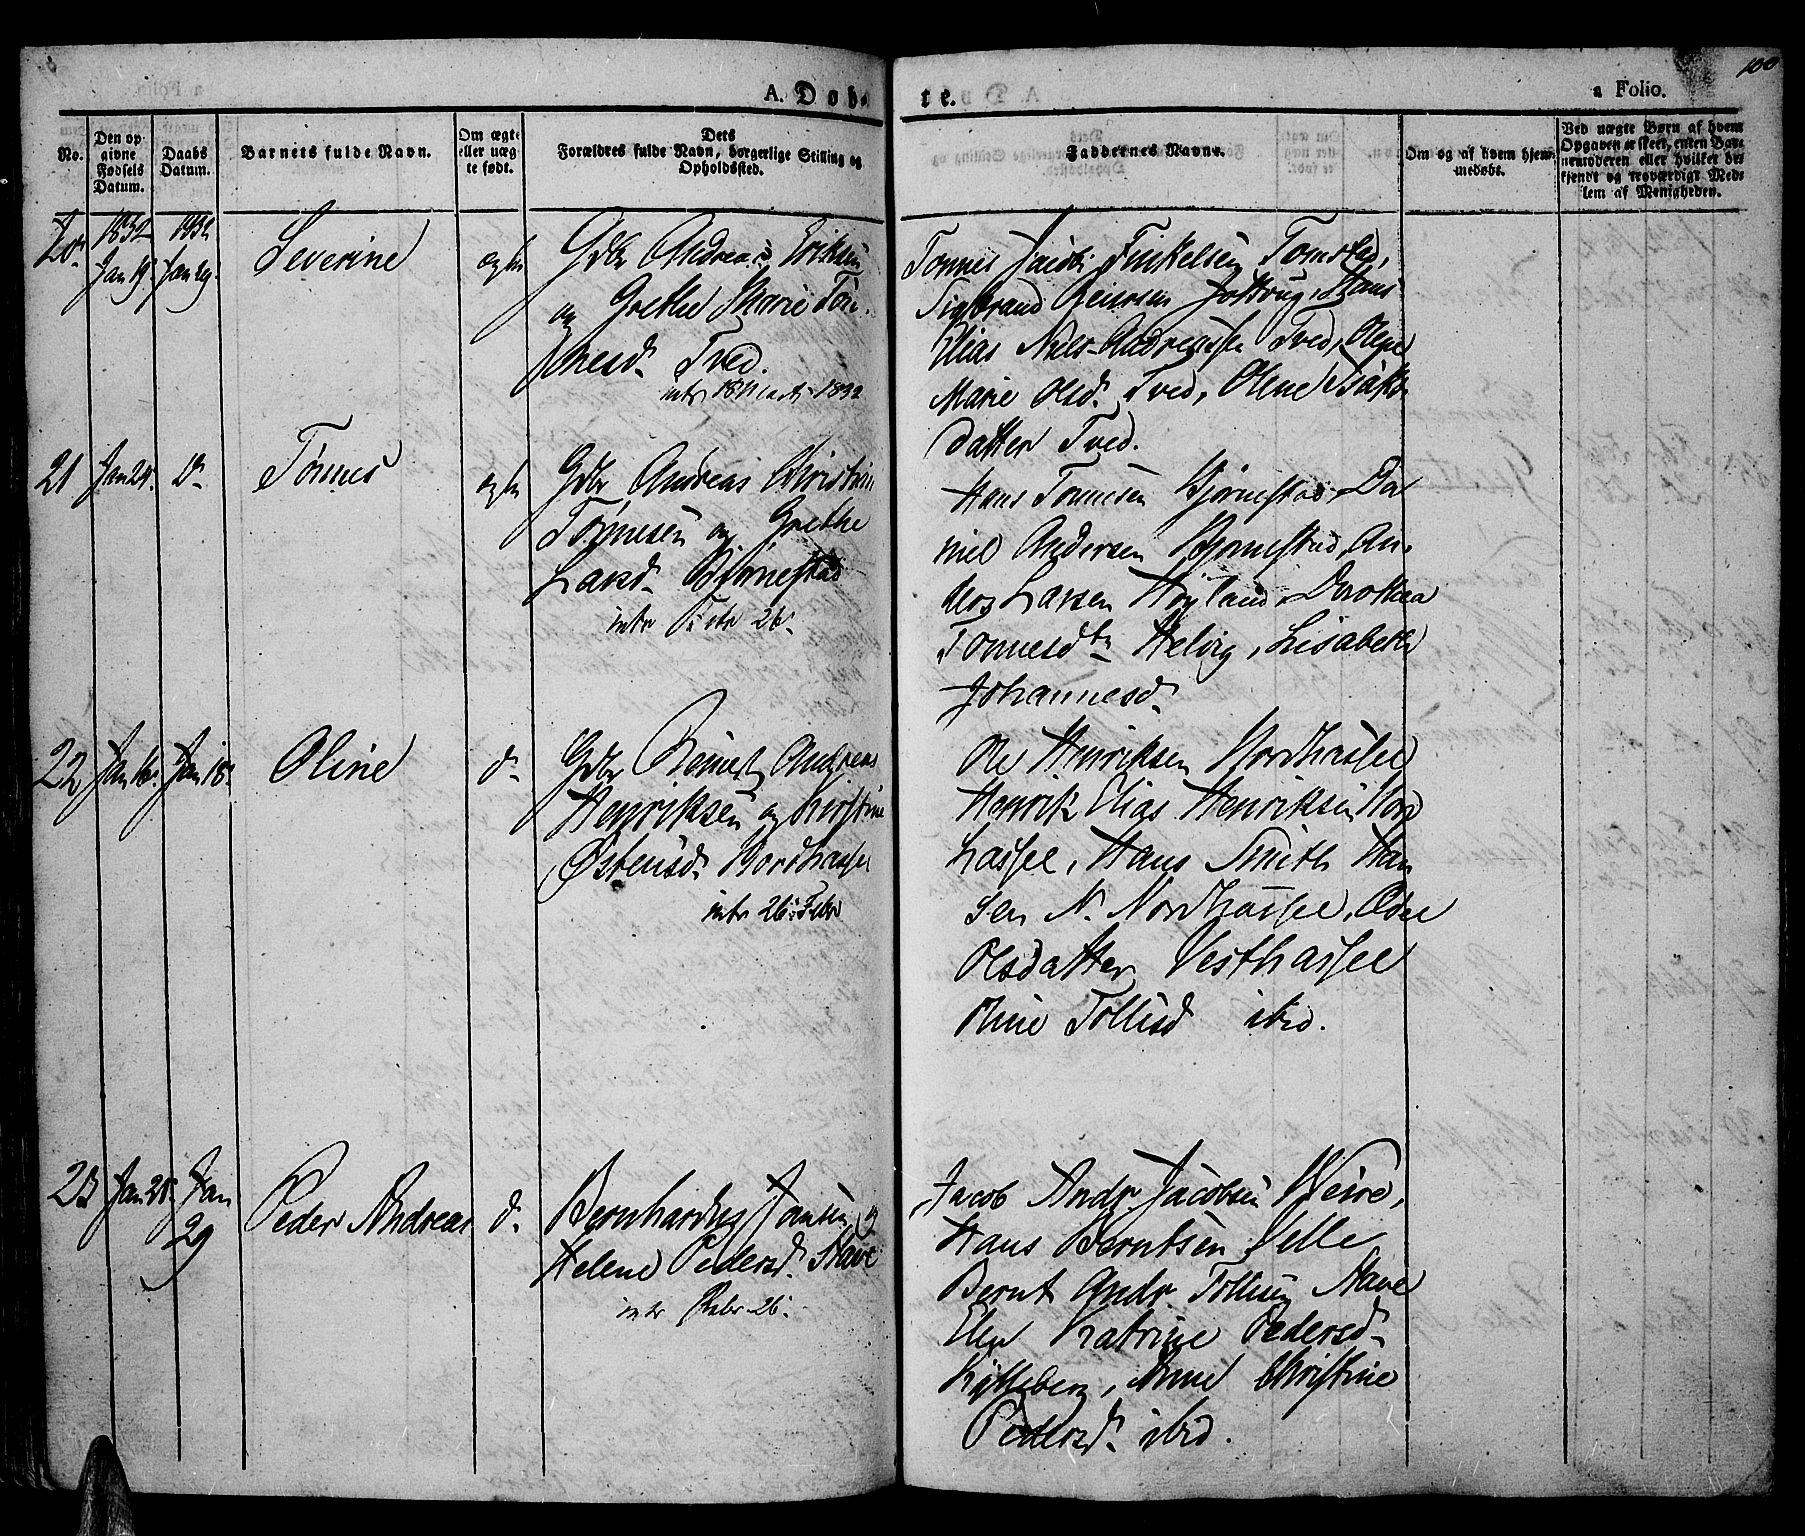 100
A. Døbte.
a Folio.
No.
Den opgivne Fødsels Datum.
Daabs Datum.
Barnets fulde Navn.
Om ægte eller uægte født.
Dets Forældres fulde Navn, borgerlige Stilling og Opholdssted.
Faddernes Navne.
Om og af hvem hjemmedøbt.
Ved uægte Børn af hvem Opgaven er skeet, enten Barnemoderen eller hvilket bekjendt og troværdigt Medlem af Menigheden.
20
1832
Jan 19.
1832
Jan 29.
Severine
ægte
Gdbr Andreas Eriksen
og Grethe Marie Tön-
nesd. Tved.
intr 18 Marts 1832
Tönnes Jacob Tinkelsen Tomstad,
Sigbrand Reiersen Jottrug, Hans
Elias Niels Andreassen Tved, Olene
Marie Olsd. Tved, Olene Isaks-
datter Tved.
21
Jan 24.
D.
Tönnes
ægte
Gdbr Andreas Christian
Tönnesen og Grethe
Larsd. Björnestad
intr Febr 26.
Hans Tönnesen Björnestad, Da
niel Andersen Björnestad, An-
ders Larsen Höyland, Dorothea
Tönnesdtr Helvig, Lisabeth
Johannesd.
22
Jan 16.
Jan 18.
Oline
d.
Gdbr Berndt Andreas
Henriksen og Kirstine
Östensd. Nordhassel
intr 26. Febr
Ole Henriksen Nordhassel
Henrik Elias Henriksen Nord
hassel, Hans Smith Han
sen N. Nordhassel,
Olsdatter Vesthassel
Oline Tollisd ibid.
23
Jan 25.
Jan
29
Peder Andreas
d.
Bernhardus Jansen og
Helene Pedersd. Stave
intr Febr 26.
Jacob Andr. Jacobsen Weire,
Hans Berntsen Velle
Bernt Andr Tollisen Stave
Elen Katrine Pedersd.
Kjelleberg, Anne Christine
Pedersd. ibid.